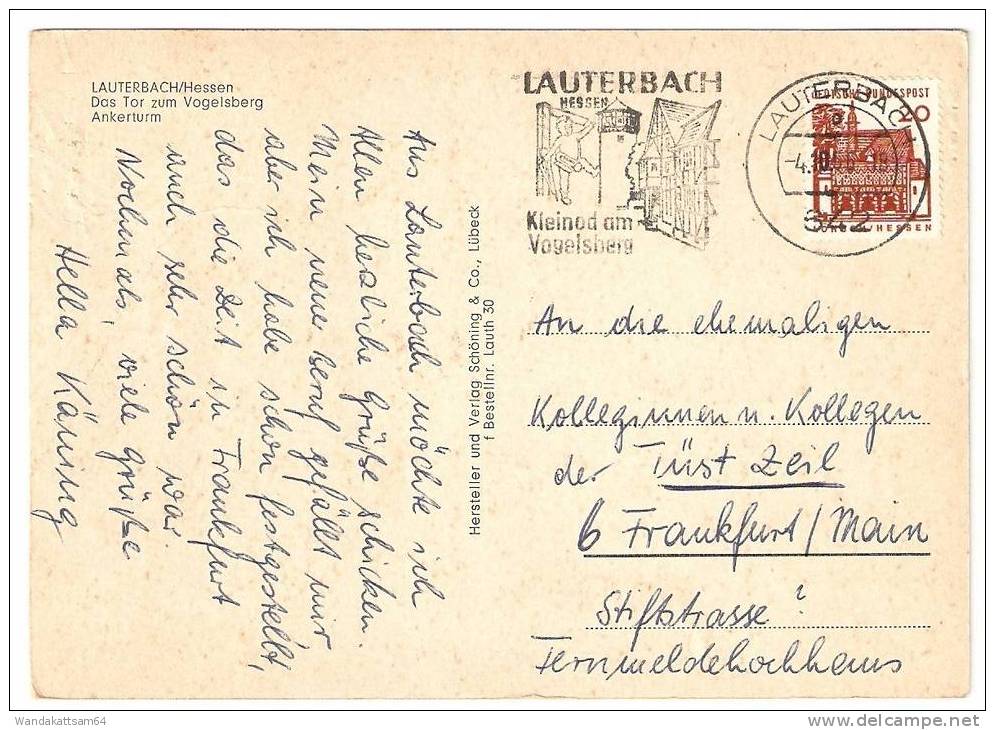 LAUTERBACH/Hessen
Das Tor zum Vogelsberg
Ankerturm
Aus Lauterbach möchte ich
Allen herzliche Grüße schicken.
Mein neuer Beruf gefällt mir
aber ich habe schon festgestellt,
das die Zeit in Frankfurt
auch sehr schön war.
Nochmals, viele Grüße
Hella
Hersteller und Verlag Schöning & Co., Lübeck
f Bestellnr. Lauth 30
LAUTERBACH
HESSEN
Kleinod am
Vogelsberg
LAUTERBACH
-4.10.
DEUTSCHE BUNDESPOST
20
/HESSEN
An die ehemaligen
Kolleginnen u. Kollegen
der Tüst Zeil
6 Frankfurt/Main
Stiftstrasse?
Fernmeldehochhaus
Wandakattsam64
delcampe.net